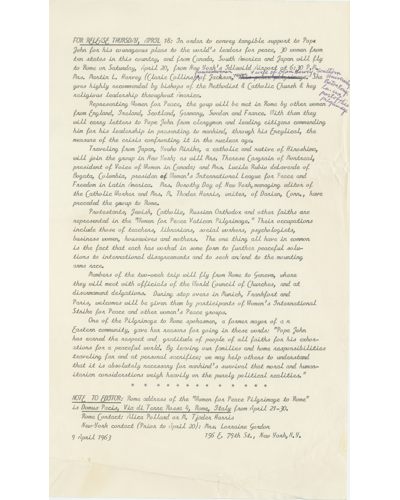 FOR RELEASE THURSDAY, APRIL 18: In order to convey tangible support to Pope
John for his courageous plans to the world's leaders for peace, 30 women from
ten states in this country, and from Canada, South America and Japan will fly
to Rome on Saturday, April 20, from New York's Idlewild Airport at 6:30 P.M.
Mrs. Martin L. Harvey (Clarie Collins) of Jackson, She
goes highly recommended by bishops of the Methodist & Catholic Church & key
religious leadership throughout America.
Representing Women for Peace, the group will be met in Rome by other women
from England, Ireland, Scotland, Germany, Sweden and France. With them they
will carry letters to Pope John from clergymen and leading citizens commending
him for his leadership in presenting to mankind, through his Encyclical, the
measure of the crisis confronting it in the nuclear age.
Traveling from Japan, a catholic and native of Hiroshima,
will join the group in New York; as will Mrs. Therese Casgrain of Montreal,
president of Voice of Women in Canada; and Mrs. Lucila Rubio de Laverde of
Bogota, Columbia, president of Women's International League for Peace and
Freedom in Latin America. Mrs. Dorothy Day of New York, managing editor of
the Catholic Worker and Mrs. M. Thoder Harris, writer, of Darien, Conn., have
preceded the group to Rome.
Protestants, Jewish, Catholic, Russian Orthodox and other faiths are
represented in the "Women for Peace Vatican Pilgrimage." Their occupations
include those of teachers, librarians, social workers, psychologists,
business women, housewives and mothers. The one thing all have in common
is the fact that each has worked in some form to further peaceful solu-
tions to international disagreements and to seek an end to the mounting
arms race.
Members of the two-week trip will fly from Rome to Geneva, where
they will meet with officials of the World Council of Churches, and at
disarmament delegations. During stop overs in Munich, Frankfurt and
Paris, welcomes will be given them by participants of Women's International
Strike for Peace and other women's Peace groups.
One of the Pilgrimage to Rome spokesmen, a former mayor of a n
Eastern community, gave her reasons for going in these words: "Pope John
has earned the respect and gratitude of people of all faiths for his exhor-
tations for a peaceful world. By leaving our families and home responsibilities
traveling far and at personal sacrifice, we may help others to understand
that it is absolutely necessary for mankind's survival that moral and human-
itarian considerations weigh heavily on the purely political realities."
* * * * * * * * * * * * *
NOTE TO EDITOR: Rome address of the "Women for Peace Pilgrimage to Rome"
is Domus Pacis, Via di Torre Rossa 4, Rome, Italy from April 21-30.
Rome Contact: Alice Pollard or M. Tjader Harris
New York contact (Prior to April 20): Mrs. Lorraine Gordon
9 April 1963 156 E. 79th St., New York, N.Y.